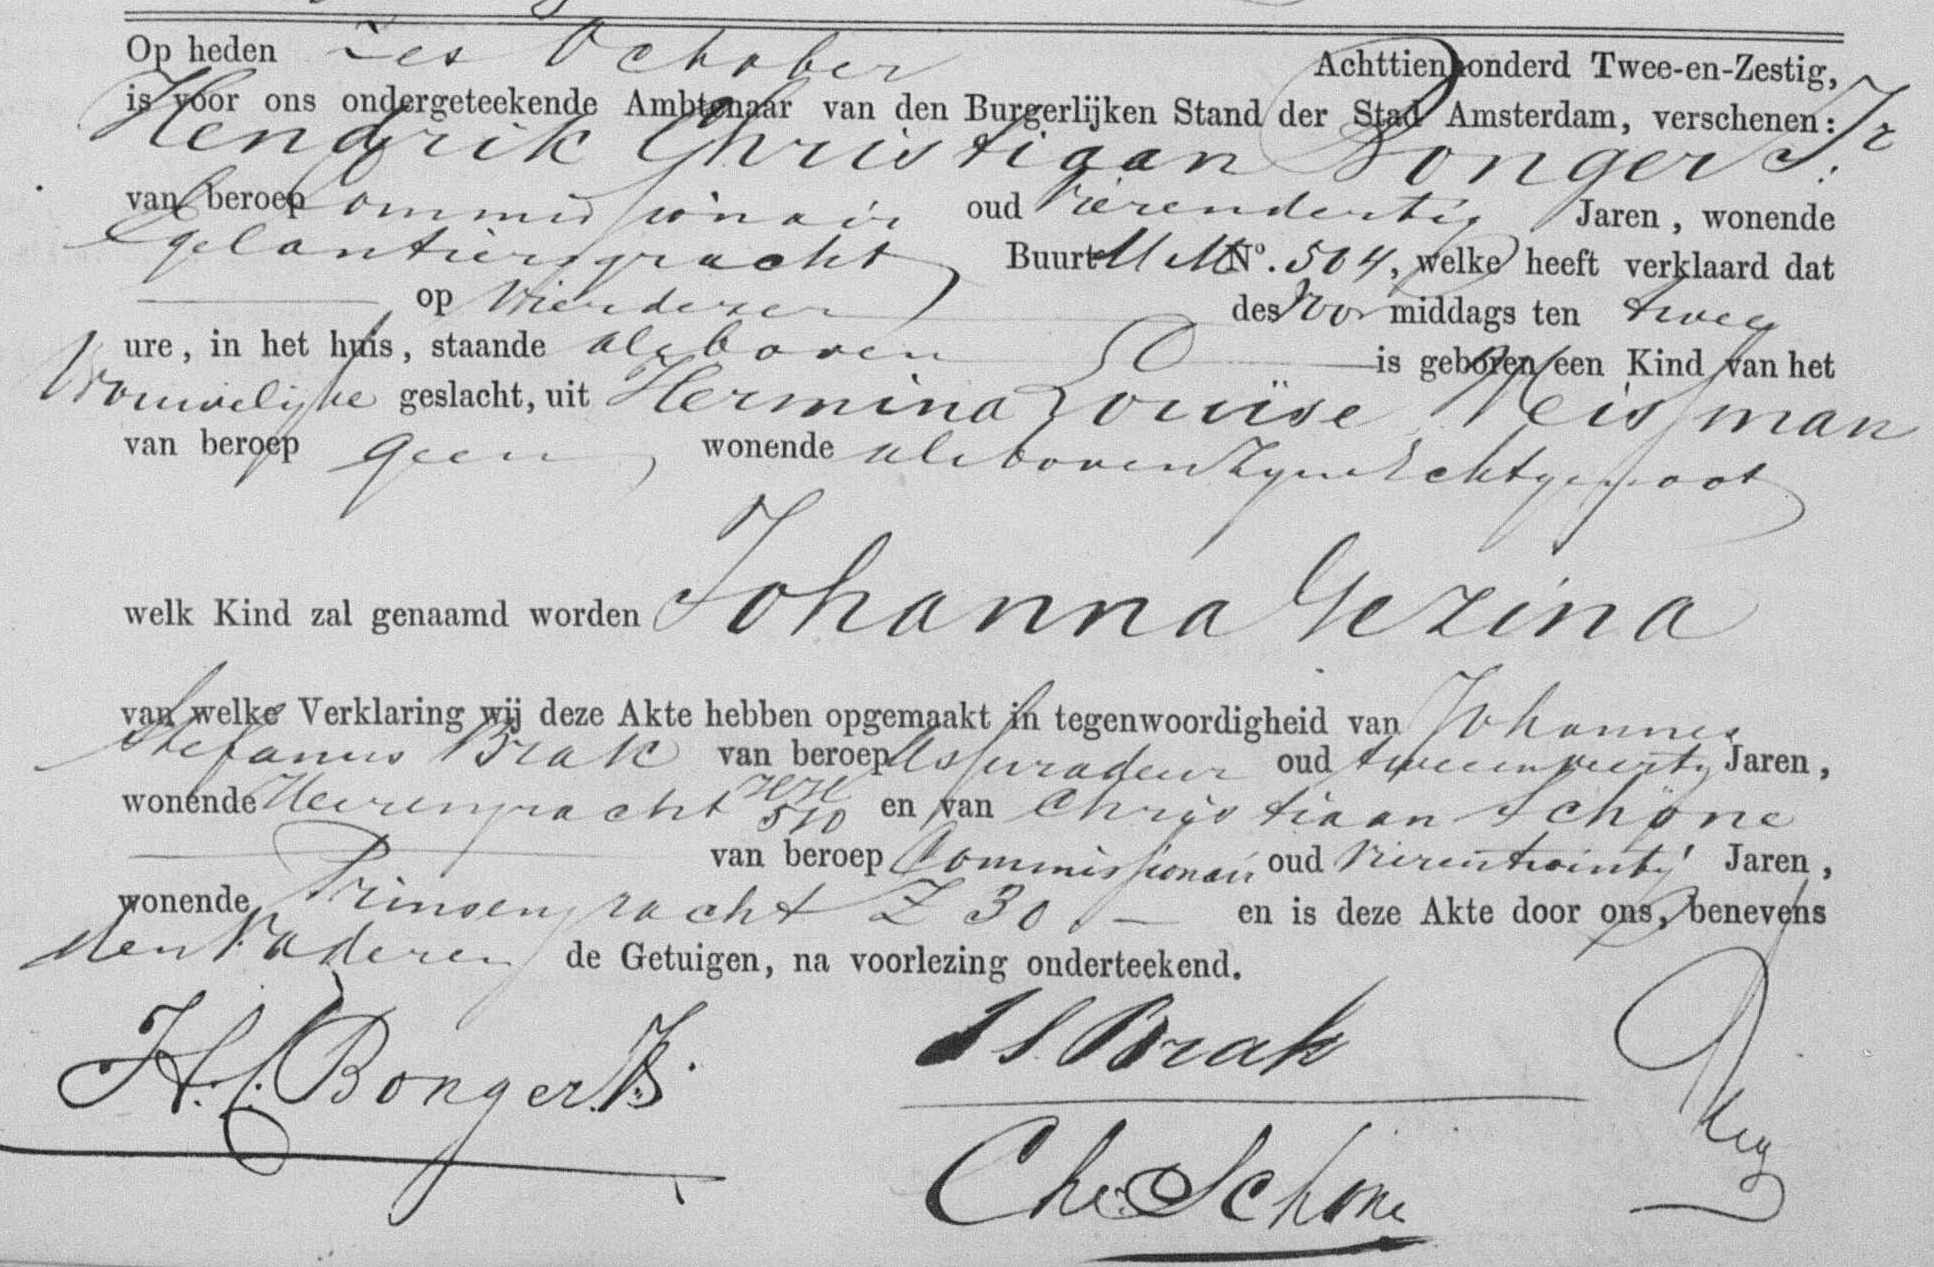 Op heden Zes October Achttienhonderd Twee-en-Zestig,
is voor ons ondergeteekende Ambtenaar van den Burgerlijken Stand der Stad Amsterdam, verschenen:
Hendrik Christiaan Bonger Jr
van beroep Commissionair oud Vierendertig Jaren, wonende
Egelantiersgracht Buurt MM No. 504, welke heeft verklaard dat
op Vierdezer des Voor middags ten twee
ure, in het huis, staande alsboven is geboren een Kind van het
Vrouwelijke geslacht, uit Hermina Louïse Weissman
van beroep geen, wonende alsboven Zyne Echtgenoot
welk Kind zal genaamd worden Johanna Gezina
van welke Verklaring wij deze Akte hebben opgemaakt in tegenwoordigheid van Johannes
Stefanus Brak van beroep Assuradeur oud tweeenveertig Jaren,
wonende Heerengracht HH 510 en van Christiaan Schöne
van beroep Commissionair oud Vierentwintig Jaren,
wonende Prinsengracht Z 30. en is deze Akte door ons, benevens
den Vader en de Getuigen, na voorlezing onderteekend.
H. C. Bonger Jr.
J S Brak
Chr. Schöne